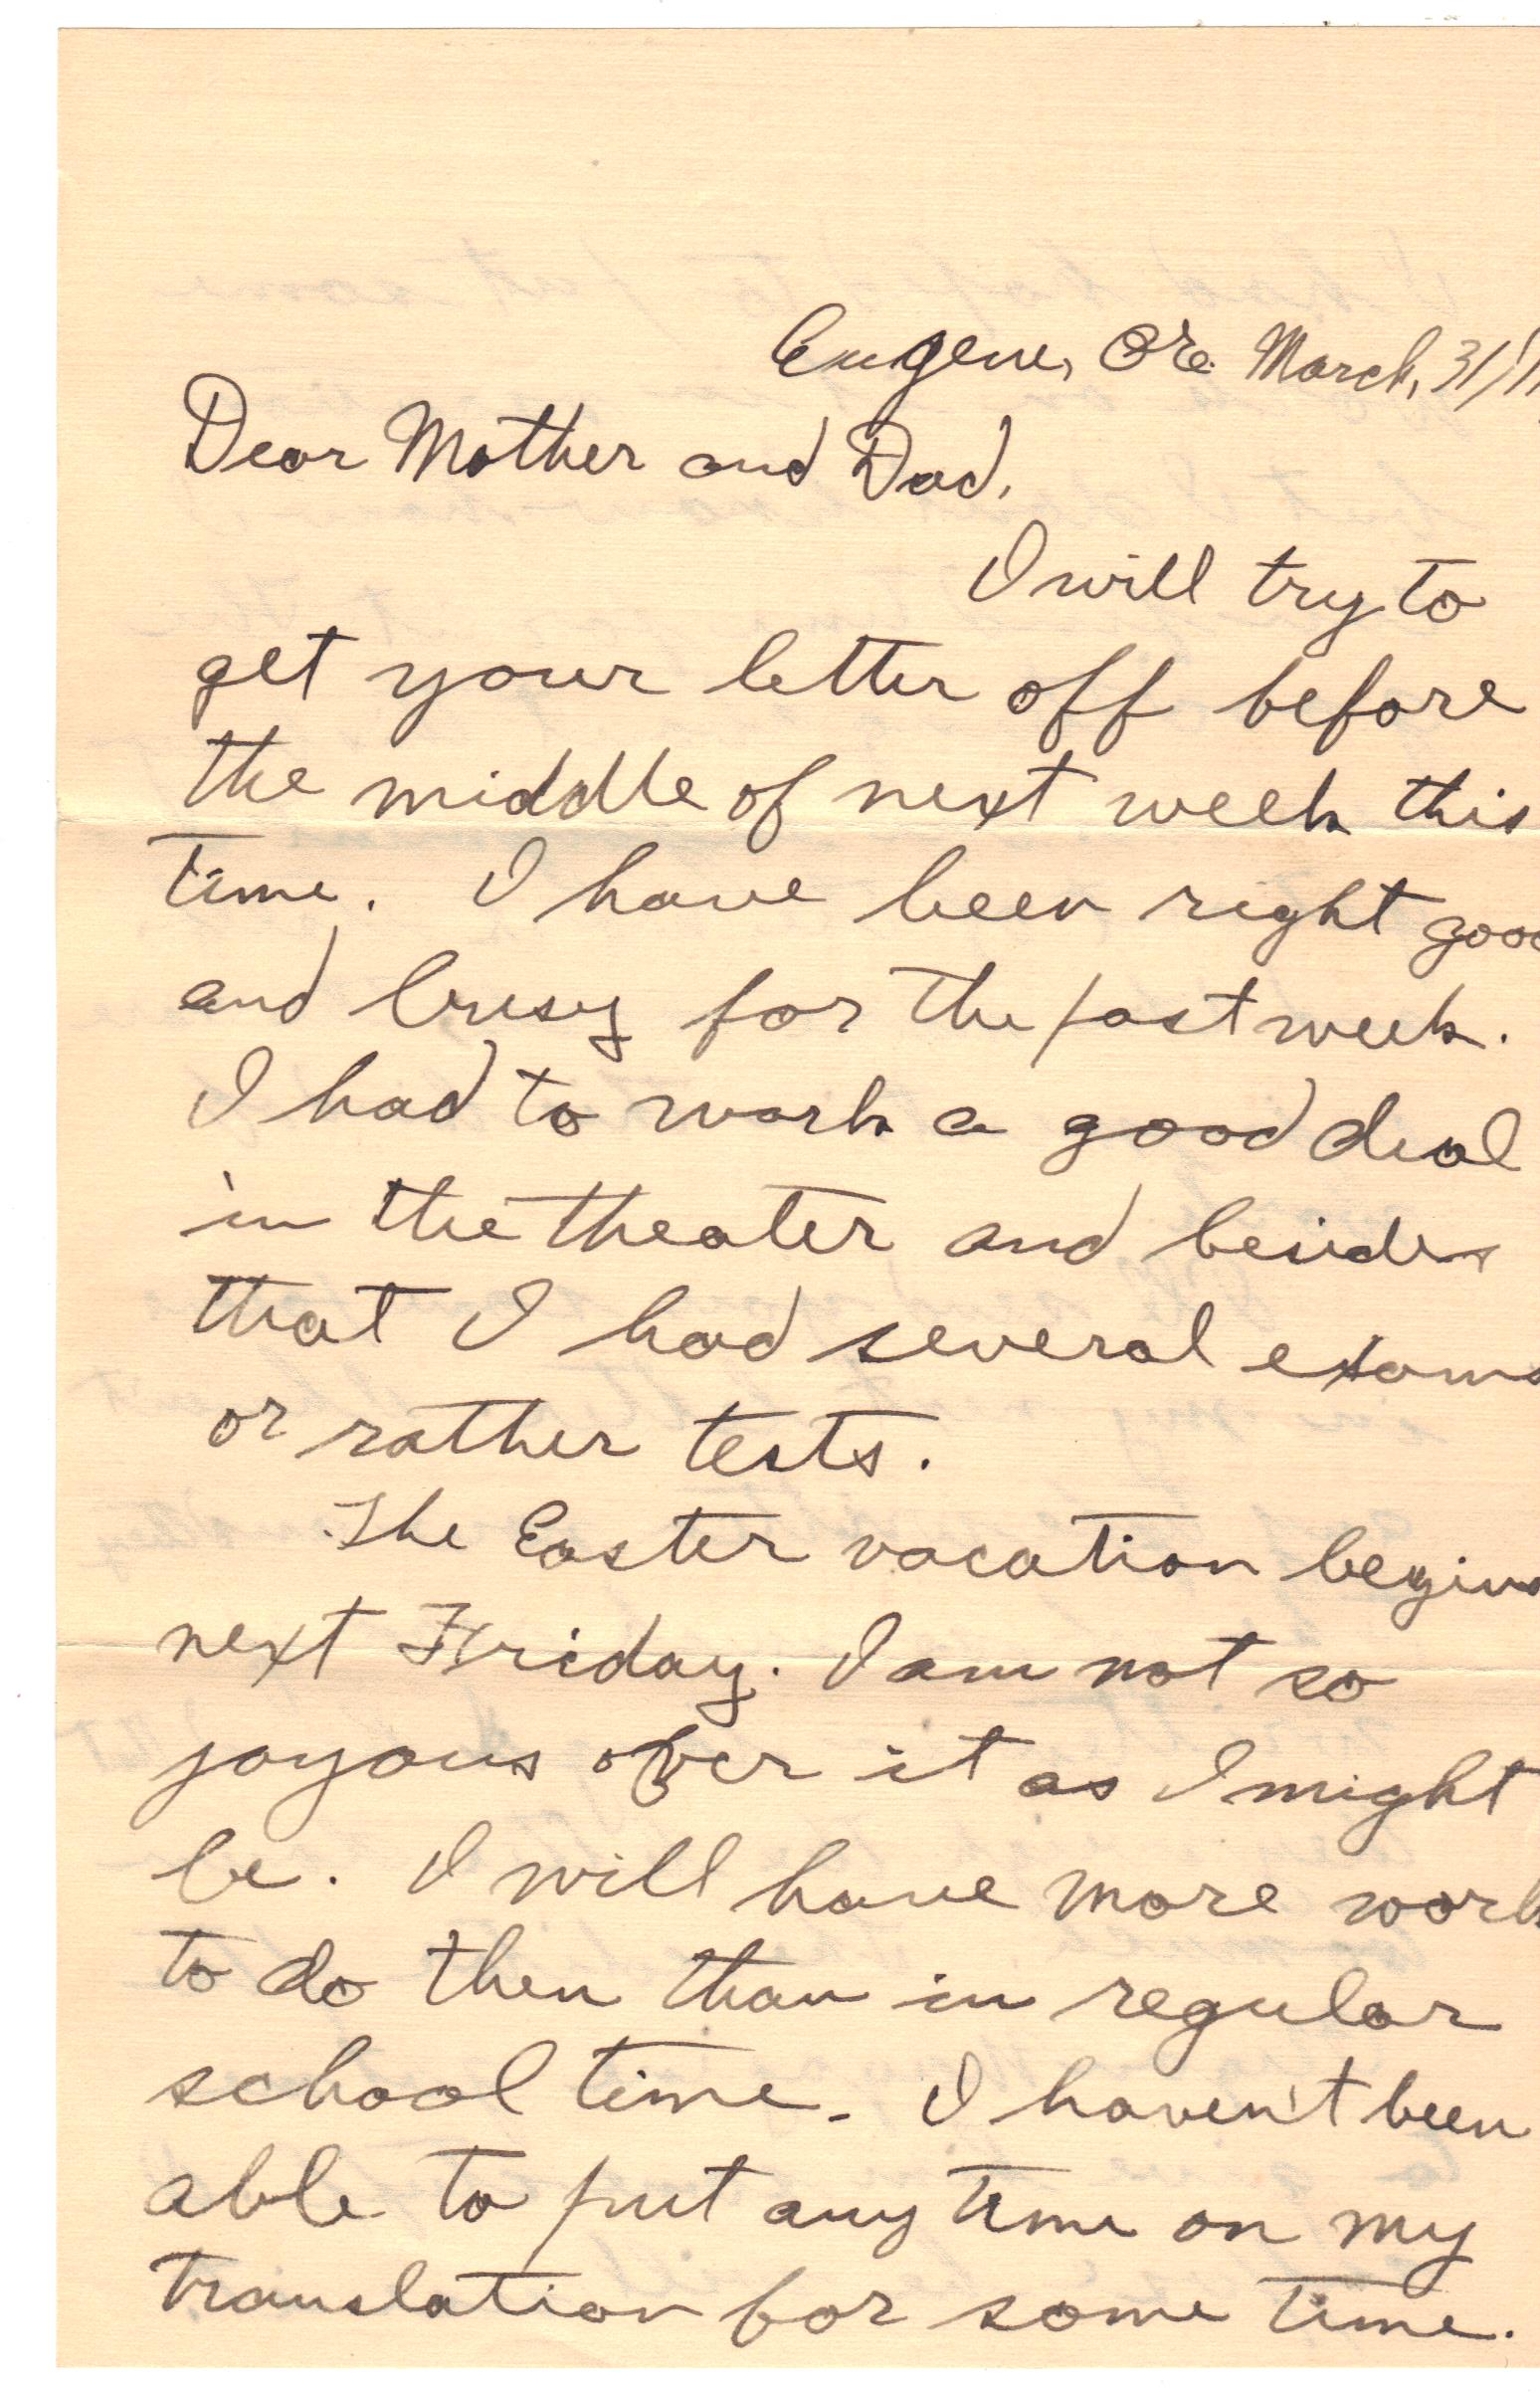 Eugene, Ore. March, 31/1
Dear Mother and Dad,
I will try to
get your letter off before
the middle of next week this
time. I have been right good
and busy for the past week.
I had to work a good deal
in the theater and besides
that I had several exams
or rather tests.
The Easter vacation begins
next Friday. I am not so
joyous over it as I might
be. I will have more work
to do then than in regular
school time. I haven't been
able to put any time on my
translation for some time.